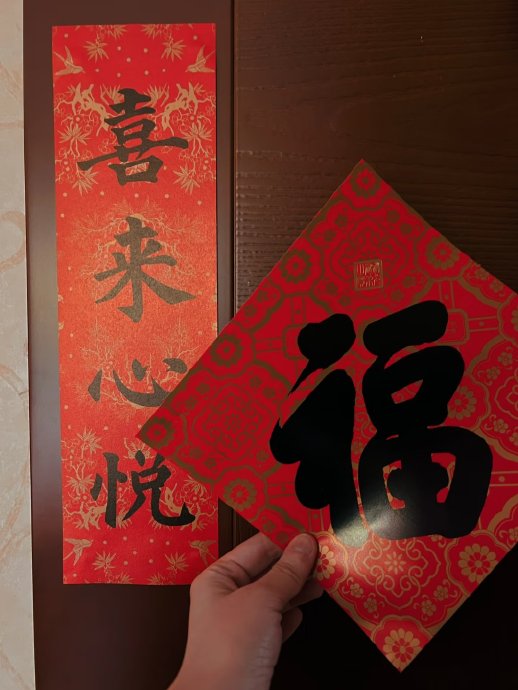 喜来心悦
福